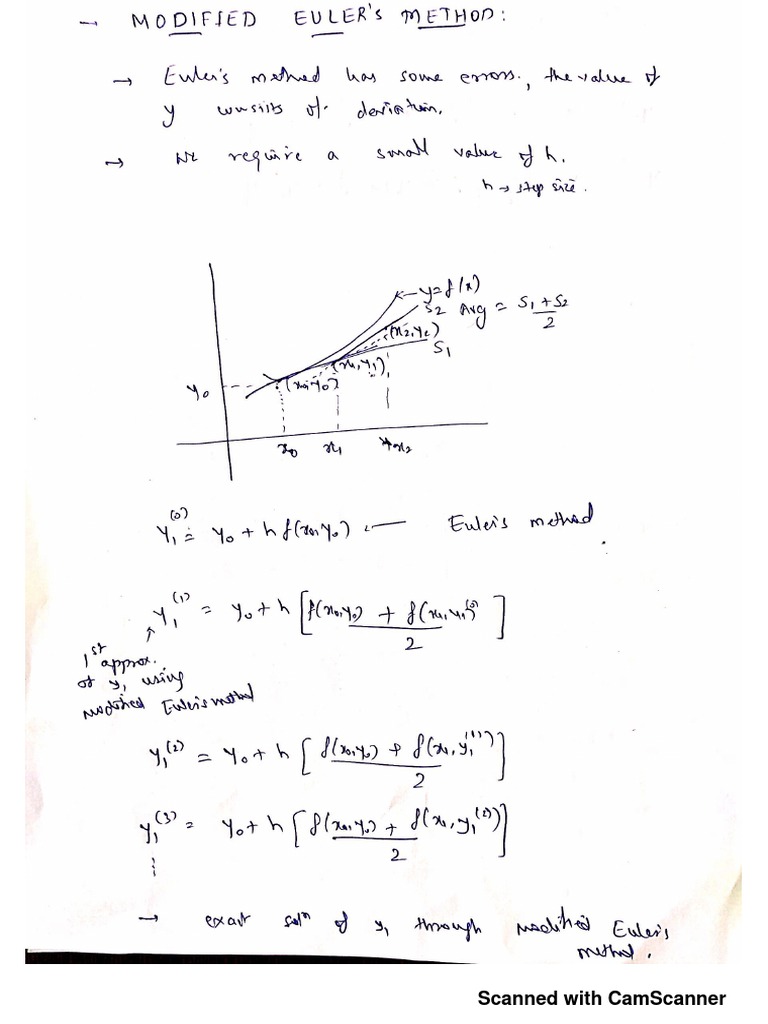 → MODIFIED EULER'S METHOD:
→ Euler's method has some errors, the value of
y consists of deviation.
→ We require a small value of h.
h → step size.
← y=f(x)
S2 Avg = S1 + S2 / 2
(x2, y2)
S1
(x1, y1)
(x0, y0)
y0
x0 x1 x2
y1^(0) = y0 + h f(x0, y0) ← Euler's method.
y1^(1) = y0 + h [ f(x0, y0) + f(x1, y1^(0)) / 2 ]
1st approx.
of y1 using
modified Euler's method
y1^(2) = y0 + h [ f(x0, y0) + f(x1, y1^(1)) / 2 ]
y1^(3) = y0 + h [ f(x0, y0) + f(x1, y1^(2)) / 2 ]
→ exact soln of y1 through modified Euler's
method.
Scanned with CamScanner